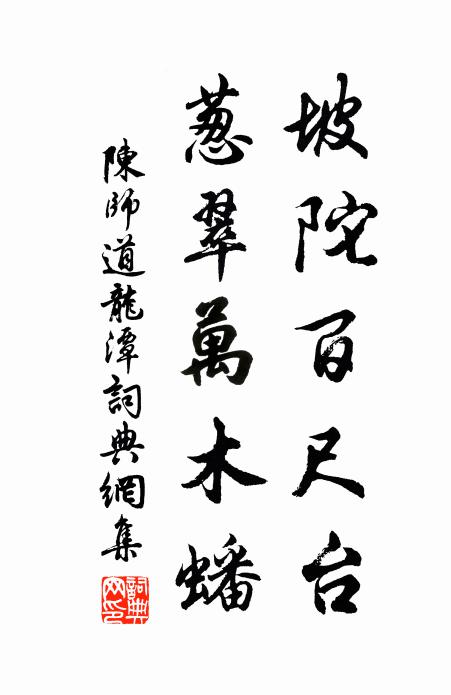 坡陀百尺台
葱翠萬木蟠
陳師道龍潭詞典網集
詞典
网印